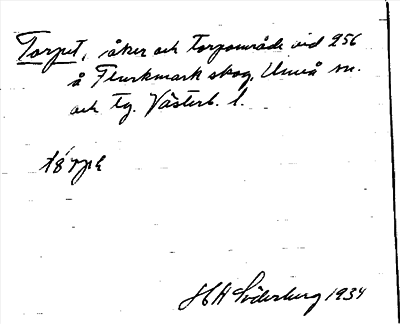 Torpet, åker och torpområde vid 256
å Flurkmark skog, Umeå sn.
och tg. Västerb. l.
HH Söderburg 1934